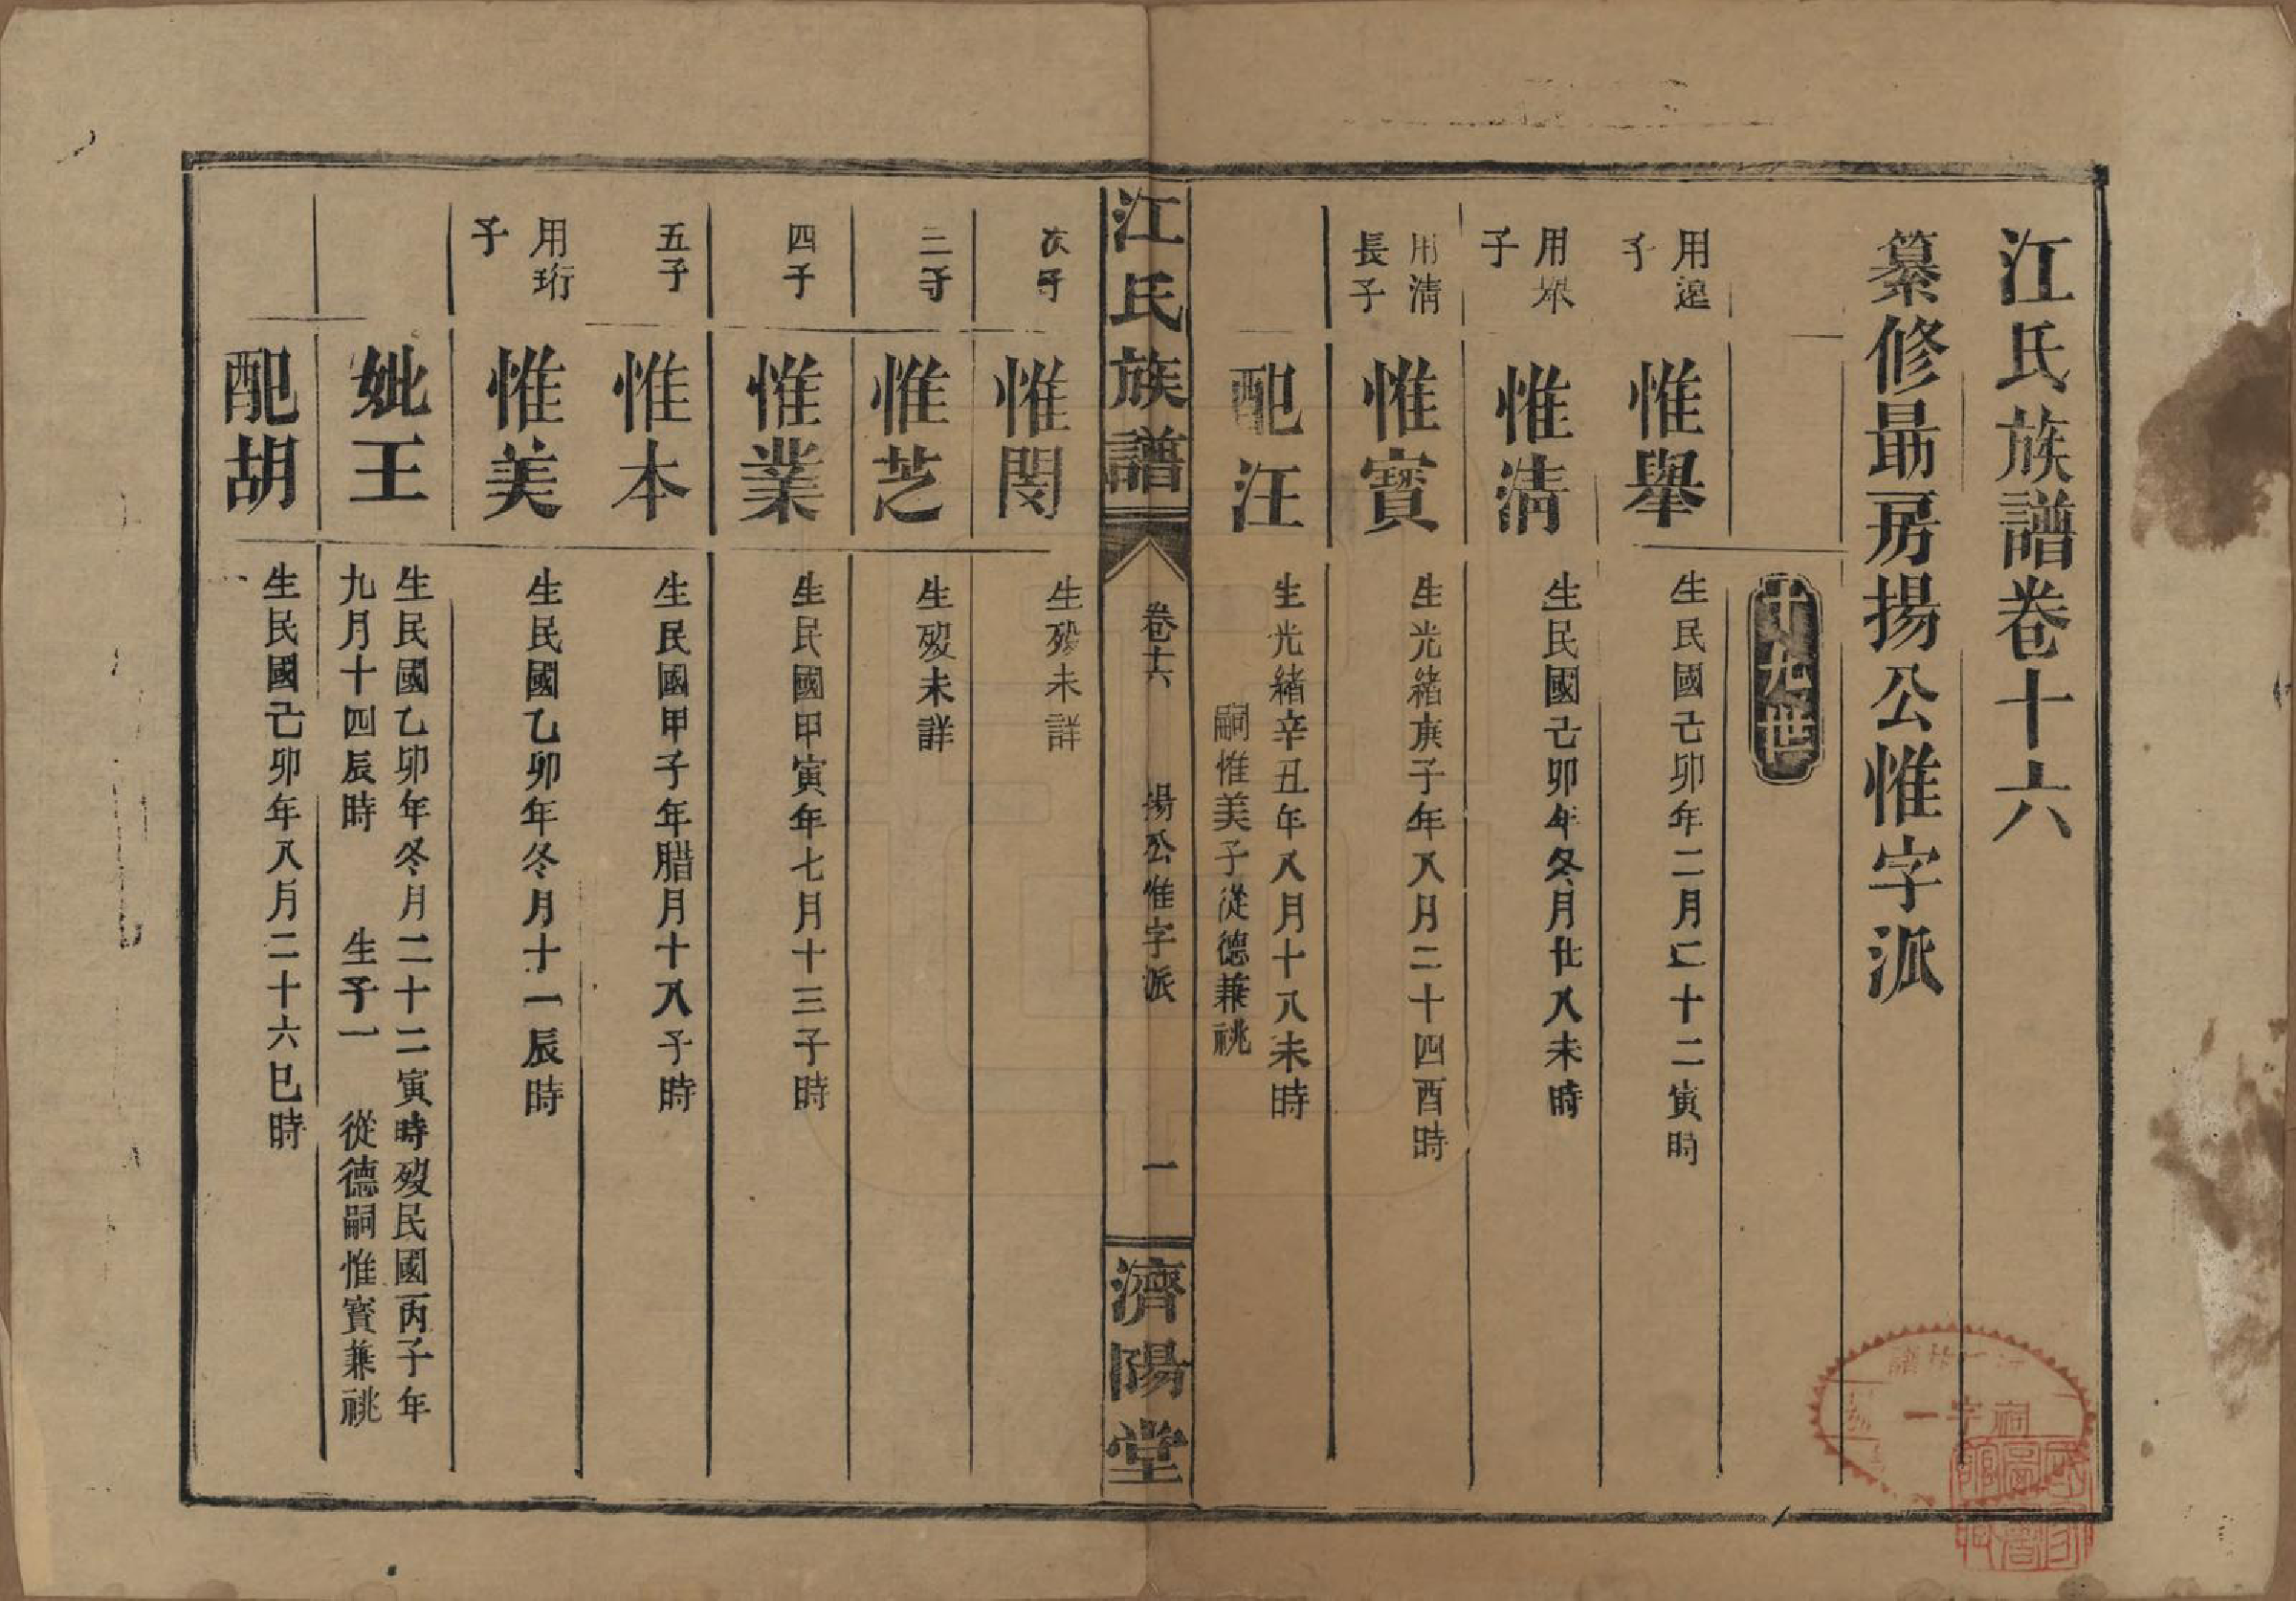 江氏族譜卷十六
纂修勗房揚公惟字派
十九世
用遑子
惟舉
生民國己卯年二月二十二寅時
用堺子
惟淸
生民國己卯年冬月廿八未時
用清長子
惟寳
生光緒庚子年八月二十四酉時
配汪
生光緒辛丑年八月十八未時
嗣惟美子從德兼祧
江氏族譜
卷十六
揚公惟字派
一
濟陽堂
次子
惟閔
生歿未詳
三子
惟芝
生歿未詳
四子
惟業
生民國甲寅年七月十三子時
五子
惟本
生民國甲子年腊月十八子時
用珩子
惟美
生民國乙卯年冬月十一辰時
妣王
生民國乙卯年冬月二十二寅時歿民國丙子年
九月十四辰時 生子一 從德嗣惟寳兼祧
配胡
生民國己卯年八月二十六巳時